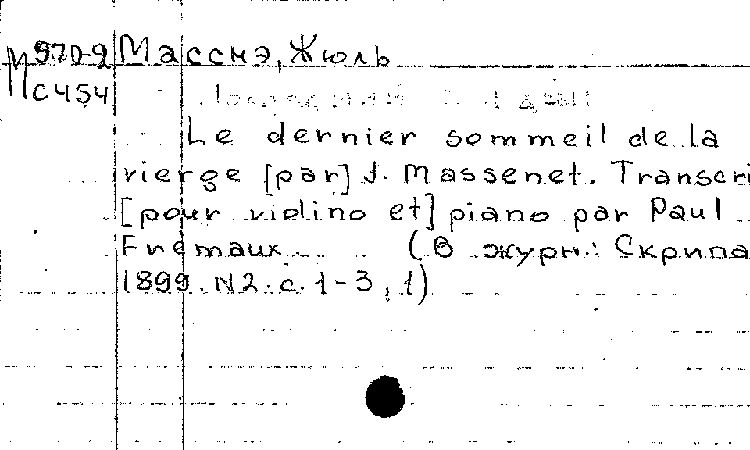 М 970-2 Масснэ, Жюль
С454
Le dernier sommeil de la
vierge [par] J. Massenet. Transcri
[pour violino et] piano par Paul
Frémaux (В журн: Скрипа
1899. N2. с. 1-3, 1)